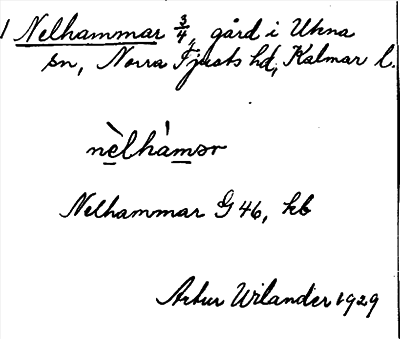 1 Nelhammar 3/4, gård i Ukna
sn, Norra Tjusts hd, Kalmar l.
nèlhámər
Nelhammar G 46, kb
Artur Wilander 1929